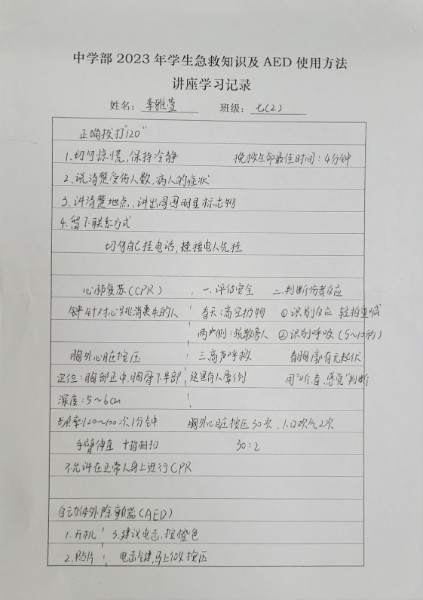 中学部 2023 年学生急救知识及 AED 使用方法
讲座学习记录
姓名： 李雅萱 班级： 七(2)
正确拨打"120"
1.切勿惊慌,保持冷静 挽救生命最佳时间:4分钟
2.说清楚受伤人数,病人的症状
3.讲清楚地点,讲出周围明显标志物
4.留下联系方式
切勿自己挂电话,接救人先挂
心肺复苏(CPR) 一.评估安全 二.判断伤者反应
针对心跳消失的人 看天:高空坠物 ①识别反应 轻拍重喊
两侧:疏散旁人 ②识别呼吸(5~10秒)
胸外心脏按压 三.高声呼救 看胸廓有无起伏
定位:胸部正中,胸骨下半部 这里有人晕倒 用"听、看、感觉"判断
深度:5~6cm
频率:120~100次1分钟 胸外心脏按压30次,人工吹气2次
手臂伸直 十指相扣 30:2
不允许在正常人身上进行CPR
自动体外除颤器(AED)
1.开机 3.建议电击,按橙色
2.贴片 电击完毕,马上做按压